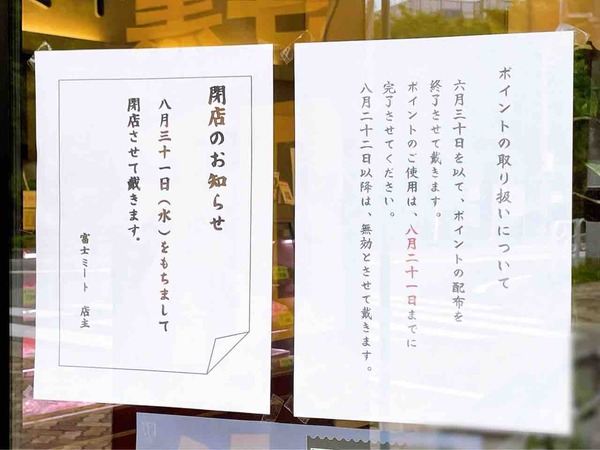 ポイントの取り扱いについて
六月三十日を以て、ポイントの配布を
終了させて戴きます。
ポイントのご使用は、八月二十一日までに
完了させてください。
八月二十二日以降は、無効とさせて戴きます。
閉店のお知らせ
八月三十一日（水）をもちまして
閉店させて戴きます．
富士ミート 店主